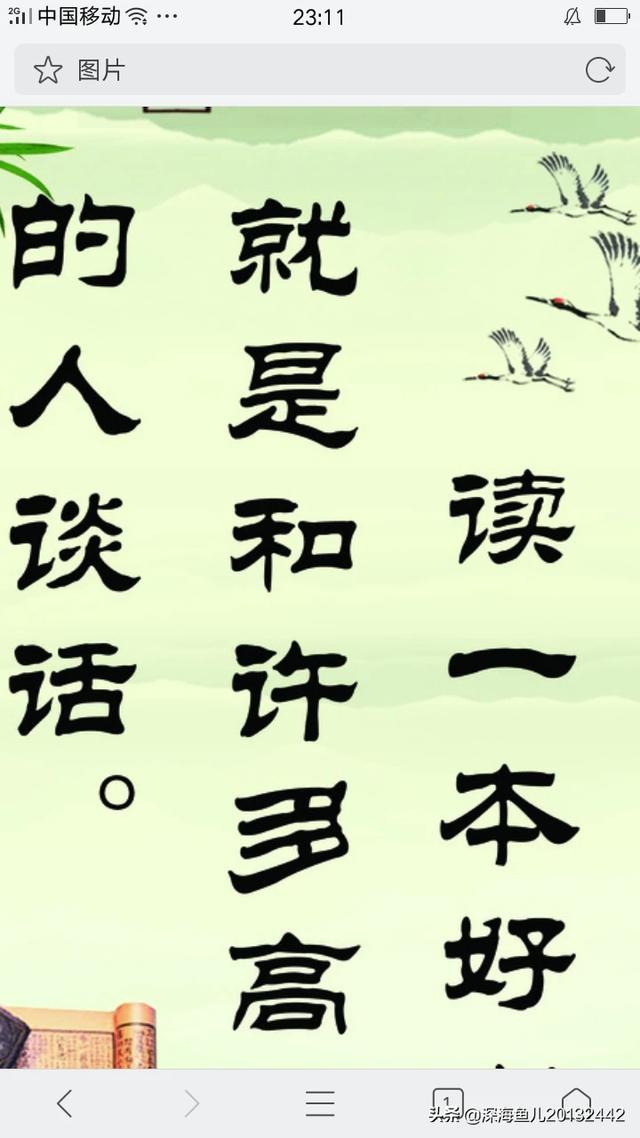 中国移动
23:11
图片
读一本好
就是和许多高
的人谈话。
1
头条 @深海鱼儿20132442